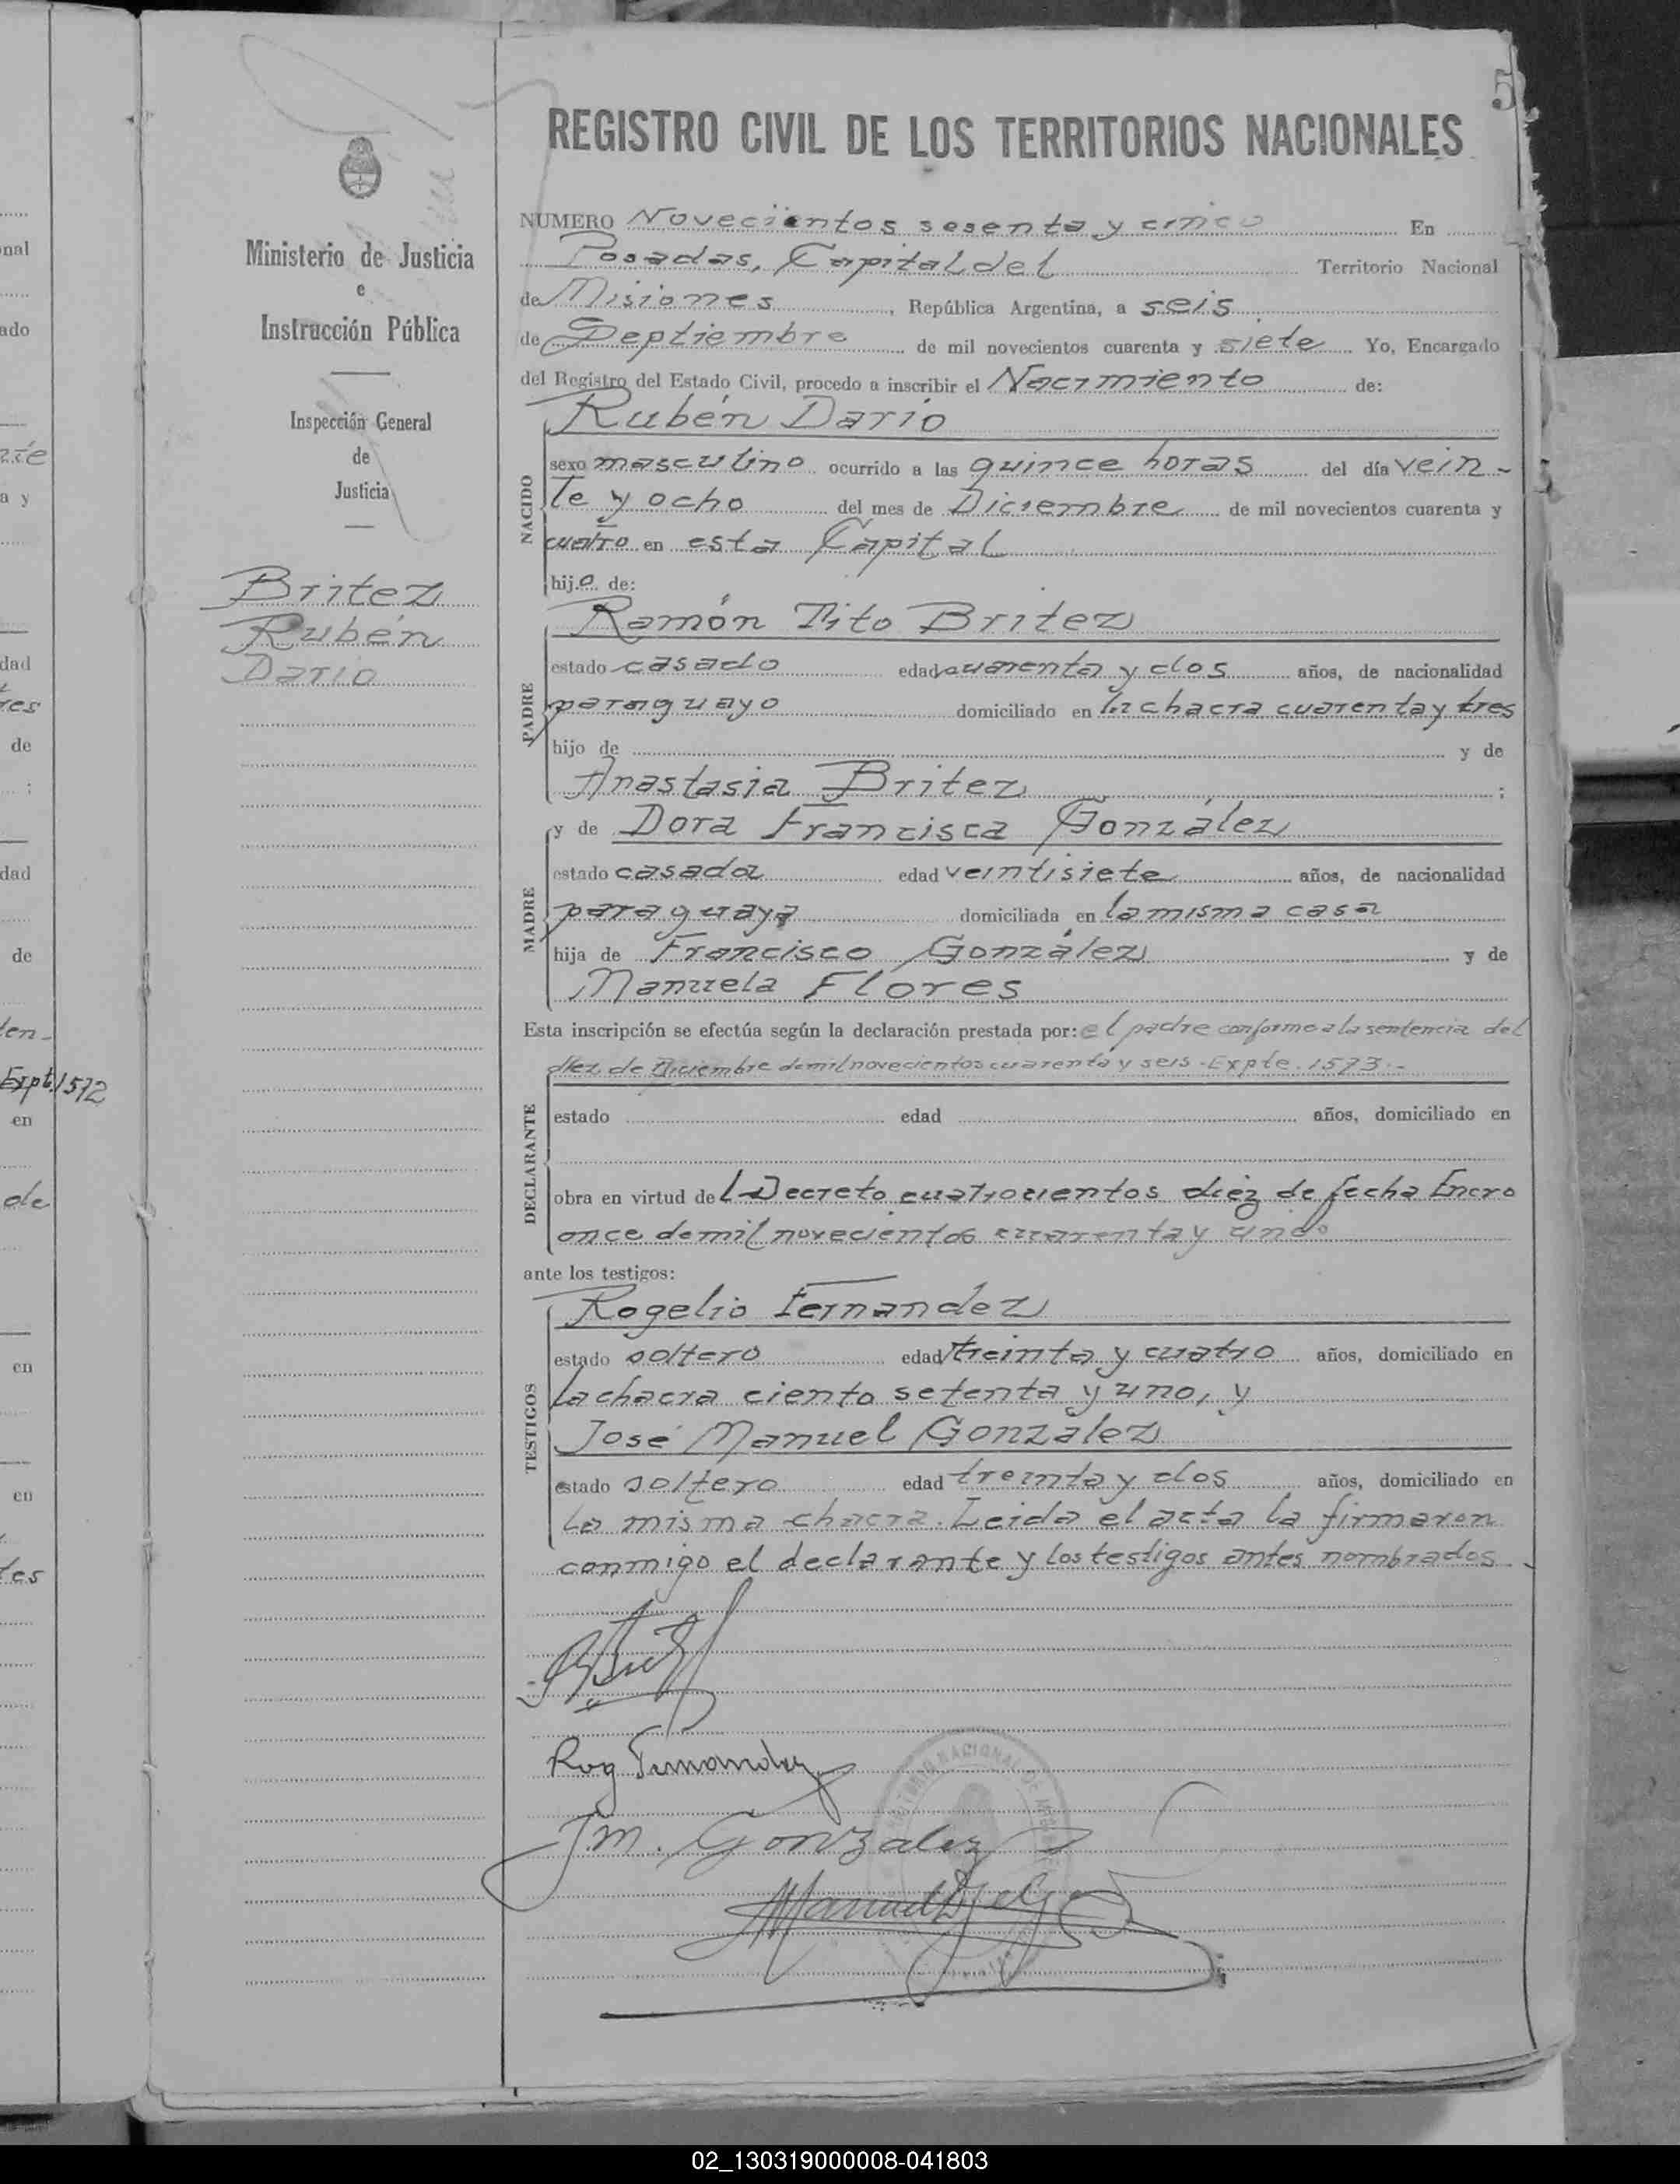 5
REGISTRO CIVIL DE LOS TERRITORIOS NACIONALES
Ministerio de Justicia
e
Instrucción Pública
Inspección General
de
Justicia
Britez
Rubén
Dario
NUMERO Novecientos sesenta y cinco En
Posadas, Capital del Territorio Nacional
de Misiones, República Argentina, a seis
de Septiembre de mil novecientos cuarenta y siete Yo, Encargado
del Registro del Estado Civil, procedo a inscribir el Nacimiento de:
Rubén Dario
NACIDO
sexo masculino ocurrido a las quince horas del día vein-
te y ocho del mes de Diciembre de mil novecientos cuarenta y
cuatro en esta Capital
hijo de:
Ramón Tito Britez
PADRE
estado casado edad cuarenta y dos años, de nacionalidad
paraguayo domiciliado en la chacra cuarenta y tres
hijo de y de
Anastasia Britez ;
y de Dora Francisca González
MADRE
estado casada edad veintisiete años, de nacionalidad
paraguaya domiciliada en la misma casa
hija de Francisco González y de
Manuela Flores
Esta inscripción se efectúa según la declaración prestada por: el padre conforme a la sentencia del
diez de Diciembre de mil novecientos cuarenta y seis - Expte. 1573.-
DECLARANTE
estado edad años, domiciliado en
obra en virtud del Decreto cuatrocientos diez de fecha Enero
once de mil novecientos cuarenta y uno
ante los testigos:
Rogelio Fernandez
TESTIGOS
estado soltero edad treinta y cuatro años, domiciliado en
la chacra ciento setenta y uno, y
José Manuel González
estado soltero edad treinta y dos años, domiciliado en
la misma chacra. Leida el acta la firmaron
conmigo el declarante y los testigos antes nombrados.
Rog Fernandez
J.M. Gonzalez
nal
ado
a y
dad
res
de
dad
de
Expt. 1572
en
de
en
en
tes
02_130319000008-041803